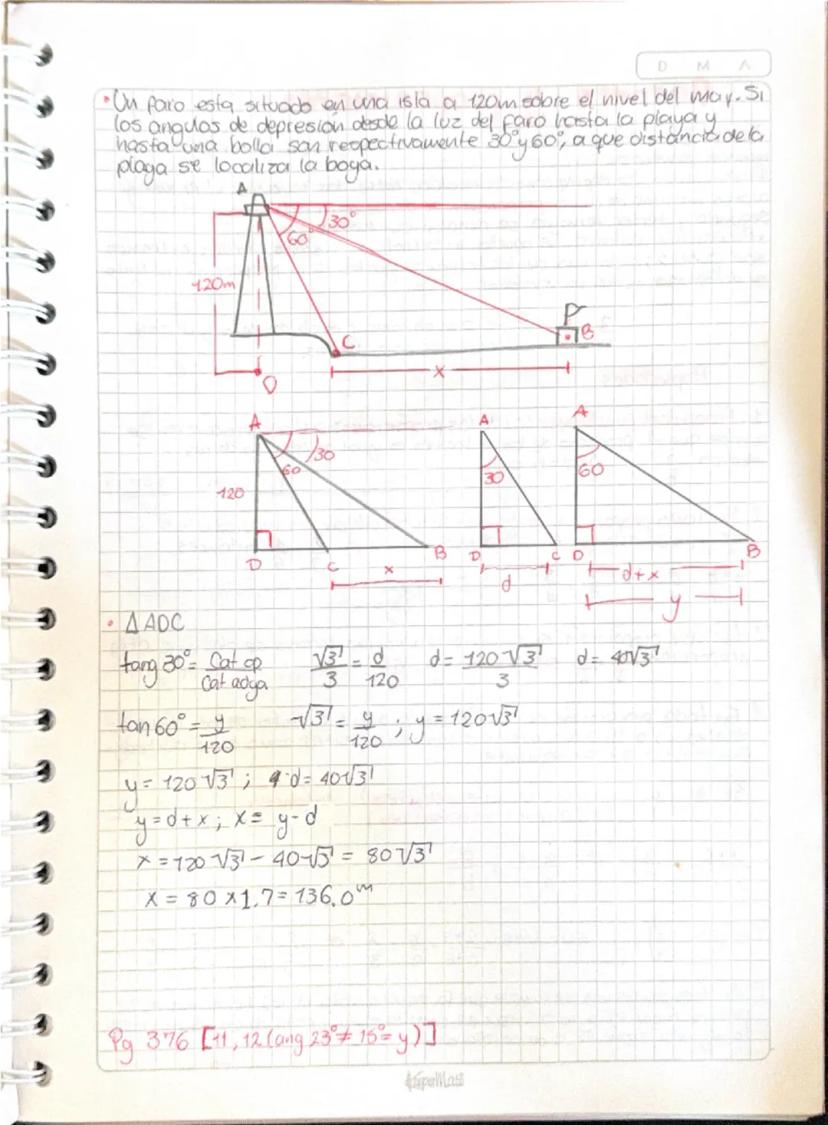 D M A
• Un faro esta situado en una isla a 120m sobre el nivel del mar. Si
los angulos de depresión desde la luz del faro hasta la playa y
hasta una bolla son respectivamente 30° y 60°, a que distancia de la
playa se localiza la boya.
A
30°
60°
120m
P
B
C
D
x
A
30
60
120
D
C
B
x
A
30
D
C
d
A
60
D
B
d+x
y
• △ADC
tang 30° = Cat op / Cat adya √3/3 = d/120 d = 120√3/3 d = 40√3
tan 60° = y/120 √3 = y/120 ; y = 120√3
y = 120√3 ; d = 40√3
y = d+x ; x = y-d
x = 120√3 - 40√3 = 80√3
x = 80 x 1.7 = 136.0 m
Pg 376 [11, 12 (ang 23° ≠ 15° = y)]